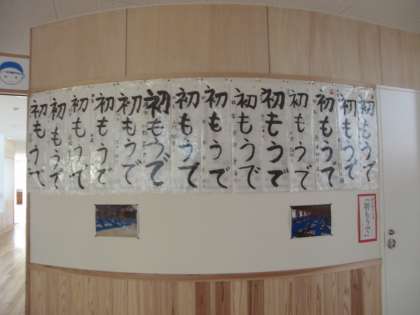 初もうで
初もうで
初もうで
初もうで
初もうで
初もうで
初もうで
初もうで
初もうで
初もうで
初もうで
初もうで
初もうで
初もうで
「初もうで」